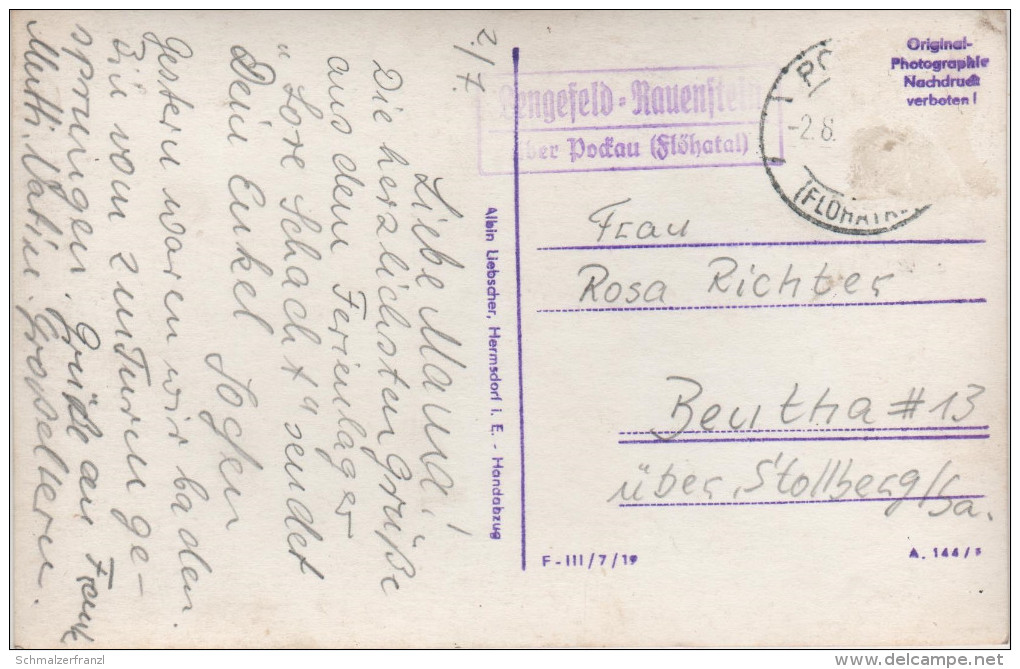 2./7.
Liebe Mama!
Die herzlichsten Grüße
aus dem Ferienlager
"Lore Schacht" sendet
Dein Enkel Jochen
Gestern waren wir baden.
Bin vom zum Turm ge-
sprungen. Grüße an Frank
Mutti, Vati u. Großeltern.
Original-
Photographie
Nachdruck
verboten!
Lengefeld-Rauenstein
über Pockau (Flöhatal)
-2.8.
(FLÖHATAL
Frau
Rosa Richter
Beutha #13
über Stollberg/Sa.
Albin Liebscher, Hermsdorf i. E. - Handabzug
F-III/7/19
A. 144/
Schmalzerfranzl
delcampe.net